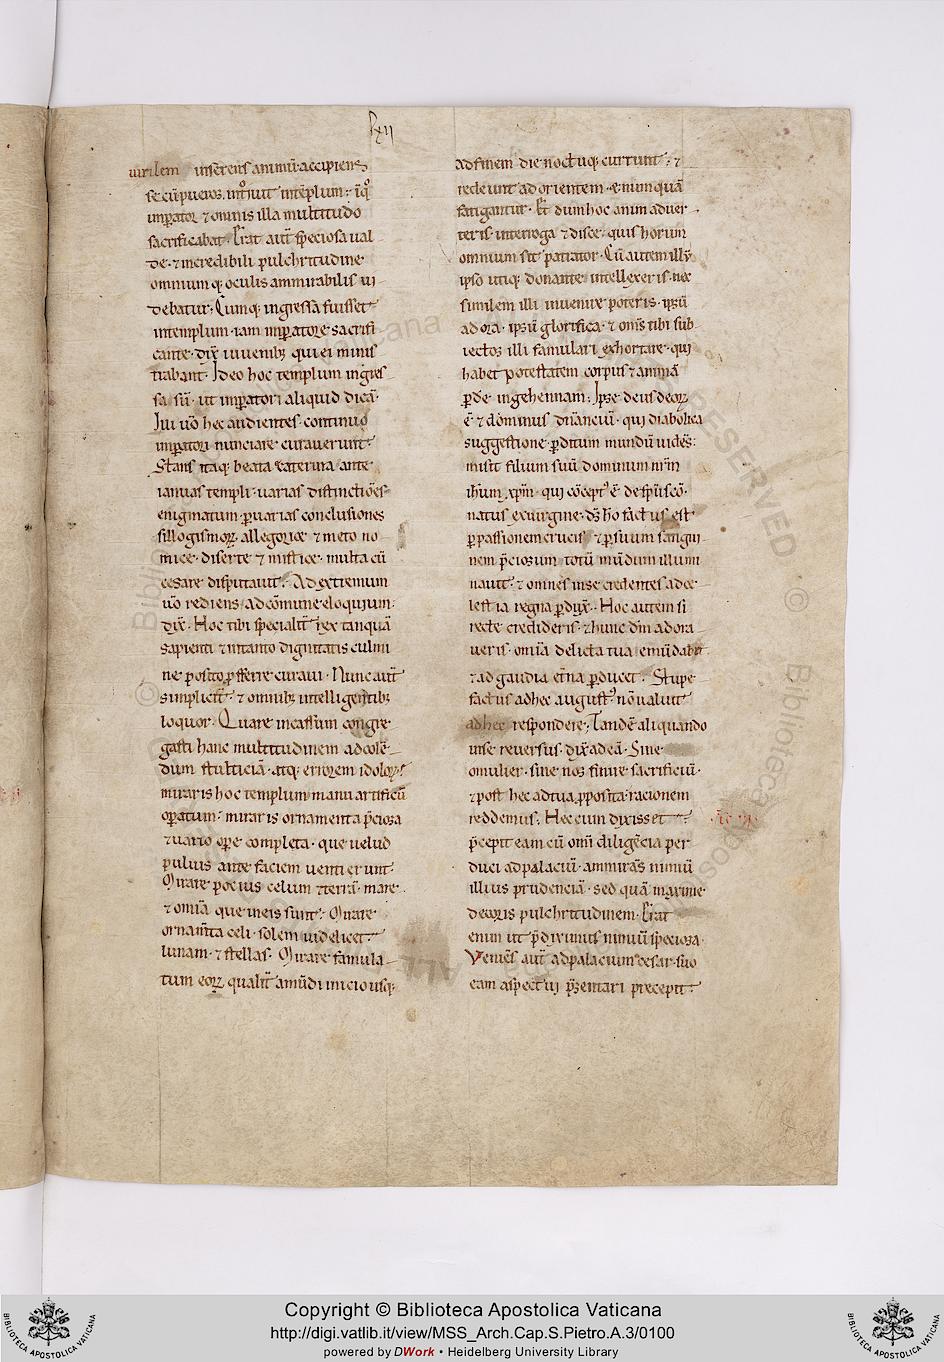 lxii
uirilem inserens animũ accipiens
se cũ pueros introiuit intẽplum · ĩ q̊
imꝑator ⁊ omnis illa multitudo
sacrificabat · Erat aut̃ speciosa ual
de · ⁊ incredibili pulchritudine
omnium q; oculis ammirabilis ui
debatur ; Cumq; ingressa fuisset
intemplum · iam imꝑatore sacrifi
cante · dix̃ iuuenib; qui ei minis
trabant · Ideo hoc templum ingres
sa sũ · ut imꝑatori aliquid dicã ·
Illi u̾o hec audientes · continuo
imꝑatori nunciare curauerunt ·
Stans itaq; beata katerina ante
ianuas templi · uarias distinctiões
enigmatum ꝑ uarias conclusiones
sillogismoꝝ allegorice ⁊ meto no
mice · diserte ⁊ mistice · multa cũ
cesare disputauit · Ad extremum
u̾o rediens · ad cõmune eloquium :
dix̃ · Hoc tibi specialit̃ rex tanquã
sapienti ⁊ intanto dignitatis culmi
ne posito ꝓferre curaui · Nunc aut̃
simplicit̃ · ⁊ omnib; intelligentib;
loquor · Quare incassum congre
gasti hanc multitudinem ad colẽ
dum stulticiã · atq; errorem idoloꝝ ·
miraris hoc templum manu artificũ
oꝑatum · miraris ornamenta p̃ciosa
⁊ uario oꝑe completa · que uelud
puluis ante faciem uenti erunt ·
Mirare pocius celum ⁊ terrã · mare
⁊ omĩa que ineis sunt · Mirare
ornam̃ta celi · solem uidelicet ·
lunam · ⁊ stellas · Mirare famula
tum eoꝝ qualit̃ a mũdi inicio usq;
ad finem die noctuq; currunt · ⁊
redeunt ad orientem · ⁊ nunquã
fatigantur · Et dum hoc anim aduer
teris · interroga ⁊ disce · quis horum
omnium sit patrator · Cũ autem illũ
ipso utiq; donante intellexeris · nec
similem illi inuenire poteris · ipsũ
adora · ipsũ glorifica · ⁊ om̃s tibi sub
iectos illi famulari exhortare · qui
habet potestatem corpus ⁊ animã
ꝑde ingehennam · Ipse deus deoꝝ
ẽ · ⁊ dominus dñanciũ · qui diabolica
suggestione · ꝑditum mundũ uidẽs :
misit filium suũ dominum nr̃m
ih̃um xp̃m · qui cõcept᷒ ẽ · de sp̃u sc̃o ·
natus ex uirgine · dš hõ factus est ·
ꝑ passionem crucis ⁊ ꝑ suum sangui
nem p̃ciosum · totũ mũdum illumi
nauit · ⁊ omnes inse credentes ad ce
lestia regna ꝑdux̃ · Hoc autem si
recte credideris · ⁊ hunc dñm adora
ueris · omĩa delicta tua emũdabit
⁊ ad gaudia et̃na ꝑducet · Stupe
factus adhec august᷒ · nõ ualuit
adhec respondere ; Tandẽ aliquando
inse reuersus · dix̃ ad eã · Sine
o mulier · sine nos finire sacrificiũ ·
⁊ post hec ad tua ꝓposita · racionem
reddemus · Hec cum dixisset ·
p̃cepit eam cũ omĩ diligẽcia per
duci ad palaciũ · ammirãs nimiũ
illius prudenciã · sed quã maxime
decoris pulchritudinem · Erat
enim ut p̃diximus nimiũ speciosa ·
Veniẽs aut̃ ad palacium cesar · suo
eam aspectui p̃sentari precepit ·
Biblioteca Apostolica Vaticana
ALL RIGHTS RESERVED
Copyright © Biblioteca Apostolica Vaticana
http://digi.vatlib.it/view/MSS_Arch.Cap.S.Pietro.A.3/0100
powered by DWork • Heidelberg University Library
BIBLIOTECA APOSTOLICA VATICANA
BIBLIOTECA APOSTOLICA VATICANA